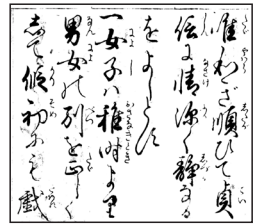 唯和ぎ順ひて貞
信に情深く静なる
をよしとす
一女子ハ稚時より
男女の別を正しく
して仮初にも戯